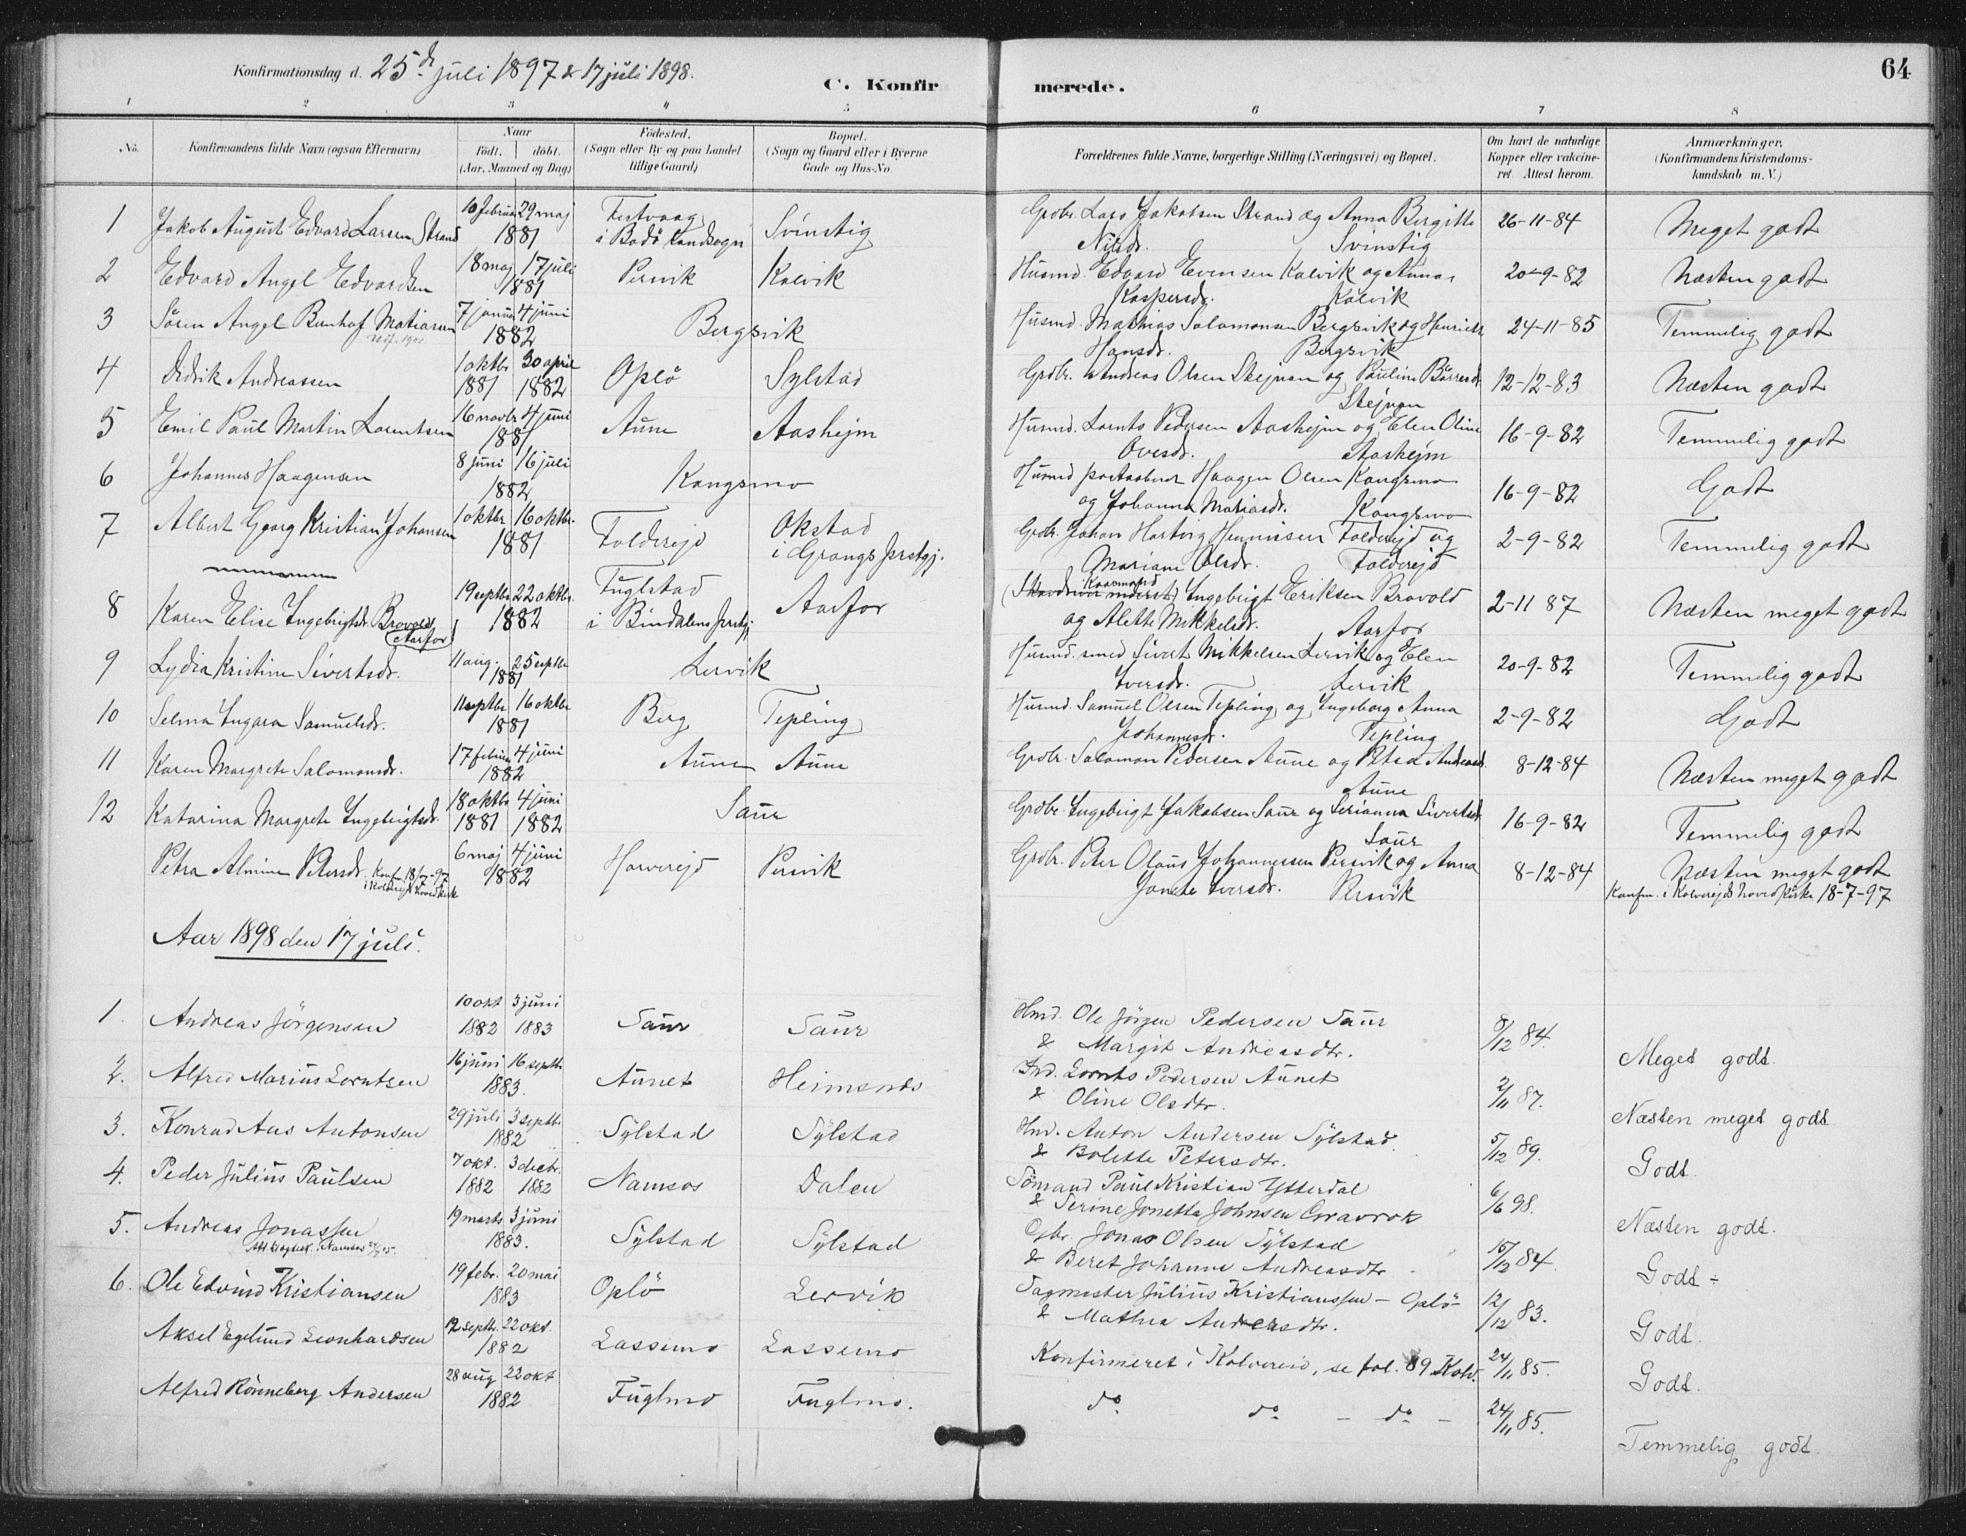 Konfirmationsdag d. 25de juli 1897 & 17 juli 1898.
C. Konfir merede. 64
1 2 3 4 5 6 7 8
No. Konfirmandens fulde Navn (ogsaa Efternavn) Naar Född. döbt. (Aar, Maaned og Dag) Födested. (Sogn eller By og paa Landet tillige Gaard) Bopæl. (Sogn og Gaard eller i Byerne Gade og Hus-No. Forældrenes fulde Navne, borgerlige Stilling (Næringsvei) og Bopæl. Om havt de naturlige Kopper eller vakcineret. Attest herom. Anmærkninger. (Konfirmandens Kristendomskundskab m. V.)
1 Jakob August Edvard Larsen Strand 10 februar 29 maj 1881 Festvaag i Bodö landsogn Svinstig Grdbr. Lars Jakobsen Strand og Anna Bergitte Nilsdr. Svinstig 26-11-84 Meget godt
2 Edvard Angel Edvardsen 18 maj 17 juli 1881 Persvik Kalvik Husmd. Edvard Evensen Kalvik og Anna Kaspersdr. Kalvik 20-9-82 Næsten godt
3 Sören Angel Matiasen 7 januar 4 juni 1882 Bergsvik Husmd. Mathias Salomonsen Bergsvik og Henrikke Hansdr. Bergsvik 24-11-85 Temmelig godt
4 Didrik Andreassen 1 oktbr 30 april 1881 1882 Oplö Sylstad Grdbr. Andreas Olsen Skejnan og Pauline Börresdr. Skejnan 12-12-83 Næsten godt
5 Emil Paul Martin Lorentsen 16 novbr 4 juni 1881 Aune Aashejm Husmd. Lornts Pedersen Aashejm og Elen Oline Ovesdr. Aashejm 16-9-82 Temmelig godt
6 Johannes Haagensen 8 juni 16 juli 1882 Kongsmo Husmd Haagen Olsen Kongsmo og Johanna Matiasdr. Kongsmo 16-9-82 Godt
7 Albert Georg Kristian Johansen 1 oktbr 16 oktbr. 1881 Folderejd Okstad i Grongs prstgj. Grdbr. Johan Hartvig Henniksen Folderejd og Mariane Olsdr. Folderejd 2-9-82 Temmelig godt
8 Karen Elise Ingebrigtsdr. Brovold (Aarfor) 19 septbr 22 oktbr. 1882 Fuglstad i Bindalens prstgj. Aarfor Ingebrigt Eriksen Brovold og Alette Mikkelsdr. Aarfor 2-11 87 Næsten meget godt
9 Lydia Kristine Sivertsdr. 11 aug. 25 septbr 1881 Lervik Husmd. smed Sivert Mikkelsen Lervik og Elen Iversdr. Lervik 20-9-82 Temmelig godt
10 Selma Ingara Samuelsdr. 11 septbr 16 oktbr 1881 Berg Tepling Husmd. Samuel Olsen Tepling og Ingeborg Anna Johannesdr. Tepling 2-9-82 Godt
11 Karen Margrete Salomonsdr. 17 februar 4 juni 1882 Aune Aune Grdbr. Salomon Pedersen Aune og Petra Andreasdr. Aune 8-12-84 Næsten meget godt
12 Katarina Margrete Ingebrigtsdr. 18 oktbr 4 juni 1881 1882 Saur Grdbr. Ingebrigt Jakobsen Saur og Serianna Sivertsdr. Saur 16-9-82 Temmelig godt
Petra Almine Petersdr. Konf. 18/7-97 i Kolverejds hovedkirke 6 maj 4 juni 1882 Horverejd Persvik Grdbr. Peter Olaus Johannessen Persvik og Anna Janete Iversdr. Persvik 8-12-84 Næsten meget godt
Konfm. i Kolverejds hovedkirke 18-7-97
Aar 1898 den 17 juli.
1. Andreas Jörgensen 10 okt 3 juni 1882 1883 Saur Saur Hmd. Ole Jörgen Pedersen Saur & Margit Andreasdtr. 8/12 84. Meget godt.
2. Alfred Marius Lorntsen 16 juni 16 septb. 1883. Aunet Heimsnes Ind. Lornts Pedersen Aunet & Oline Olsdtr. 2/11 87. Næsten meget godt.
3. Konrad Aus Antonsen 29 juli 3 septb. 1882 Sylstad Sylstad Hmd. Anton Andersen Sylstad & Bolette Petersdtr. 5/12 89. Godt.
4. Peder Julius Paulsen 7 okt. 3 decbr. 1882 1882 Namsos Dalen Sömand Paul Kristian Ytterdal & Serine Jonetta Johnsen Gravrok 6/6 98. Næsten godt.
5. Andreas Jonassen 19 marts 3 juni 1883. Sylstad Sylstad Gbr. Jonas Olsen Sylstad & Beret Johanne Andreasdtr. 15/12 84. Godt -
6. Ole Edvind Kristiansen 19 febr. 20 mai 1883 Oplö Lervik Sagmester Julius Kristianssen - Oplö & Mathea Andersdtr. 12/12 83. Godt.
Aksel Egelund Leonhardsen 12 septb. 22 okt. 1882 Lassemo Lassemo Konfirmeret i Kolvereid, se fol. 89 Kolv. 24/11 85. Godt.
Alfred Rönneberg Andersen 28 aug 22 okt 1882 Fuglmo Fuglmo. do do - do - 24/11 85. Temmelig godt.